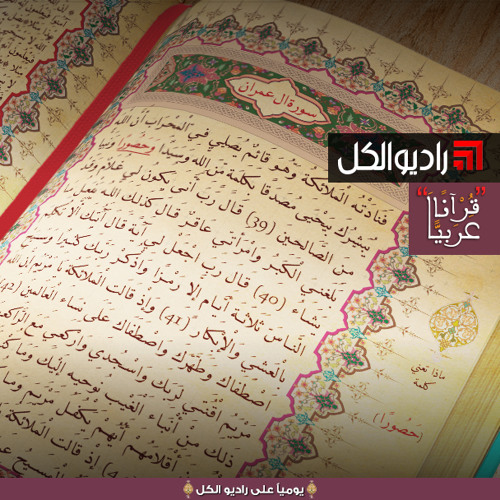 سورة آل عمران
فنادته الملائكة وهو قائم يصلي في المحراب أن الله
يبشرك بيحيى مصدقا بكلمة من الله وسيدا وحصورا ونبيا
من الصالحين (39) قال رب أنى يكون لي غلام وقد
بلغني الكبر وامرأتي عاقر قال كذلك الله يفعل ما
يشاء (40) قال رب اجعل لي آية قال آيتك ألا تكلم
الناس ثلاثة أيام إلا رمزا واذكر ربك كثيرا وسبح
بالعشي والإبكار (41) وإذ قالت الملائكة يا مريم إن الله
اصطفاك وطهرك واصطفاك على نساء العالمين (42)
مريم اقنتي لربك واسجدي واركعي مع الراكعين
ذلك من أنباء الغيب نوحيه إليك وما كنت
أقلامهم أيهم يكفل مريم وما
إذ قالت الملائكة
المسيح
راديو الكل
"قرآناً
عربياً"
ماذا تعني
كلمة
(حصورا)
يومياً على راديو الكل